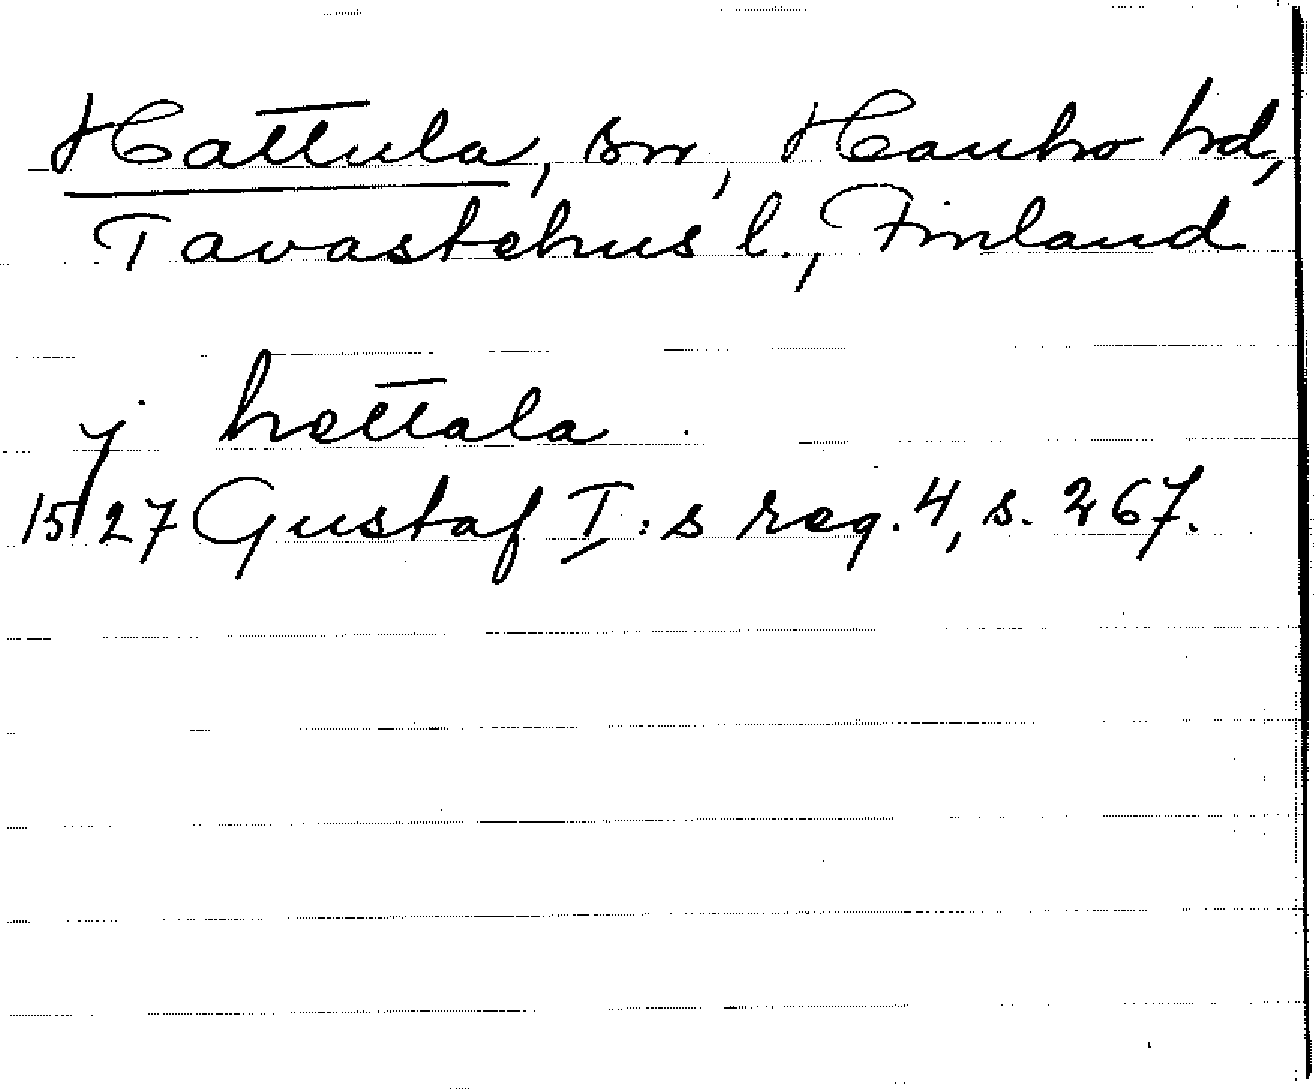 Hattula, sn, Hauho hd,
Tavastehus l., Finland
j hættala
1527 Gustaf I:s reg. 4, s. 267.